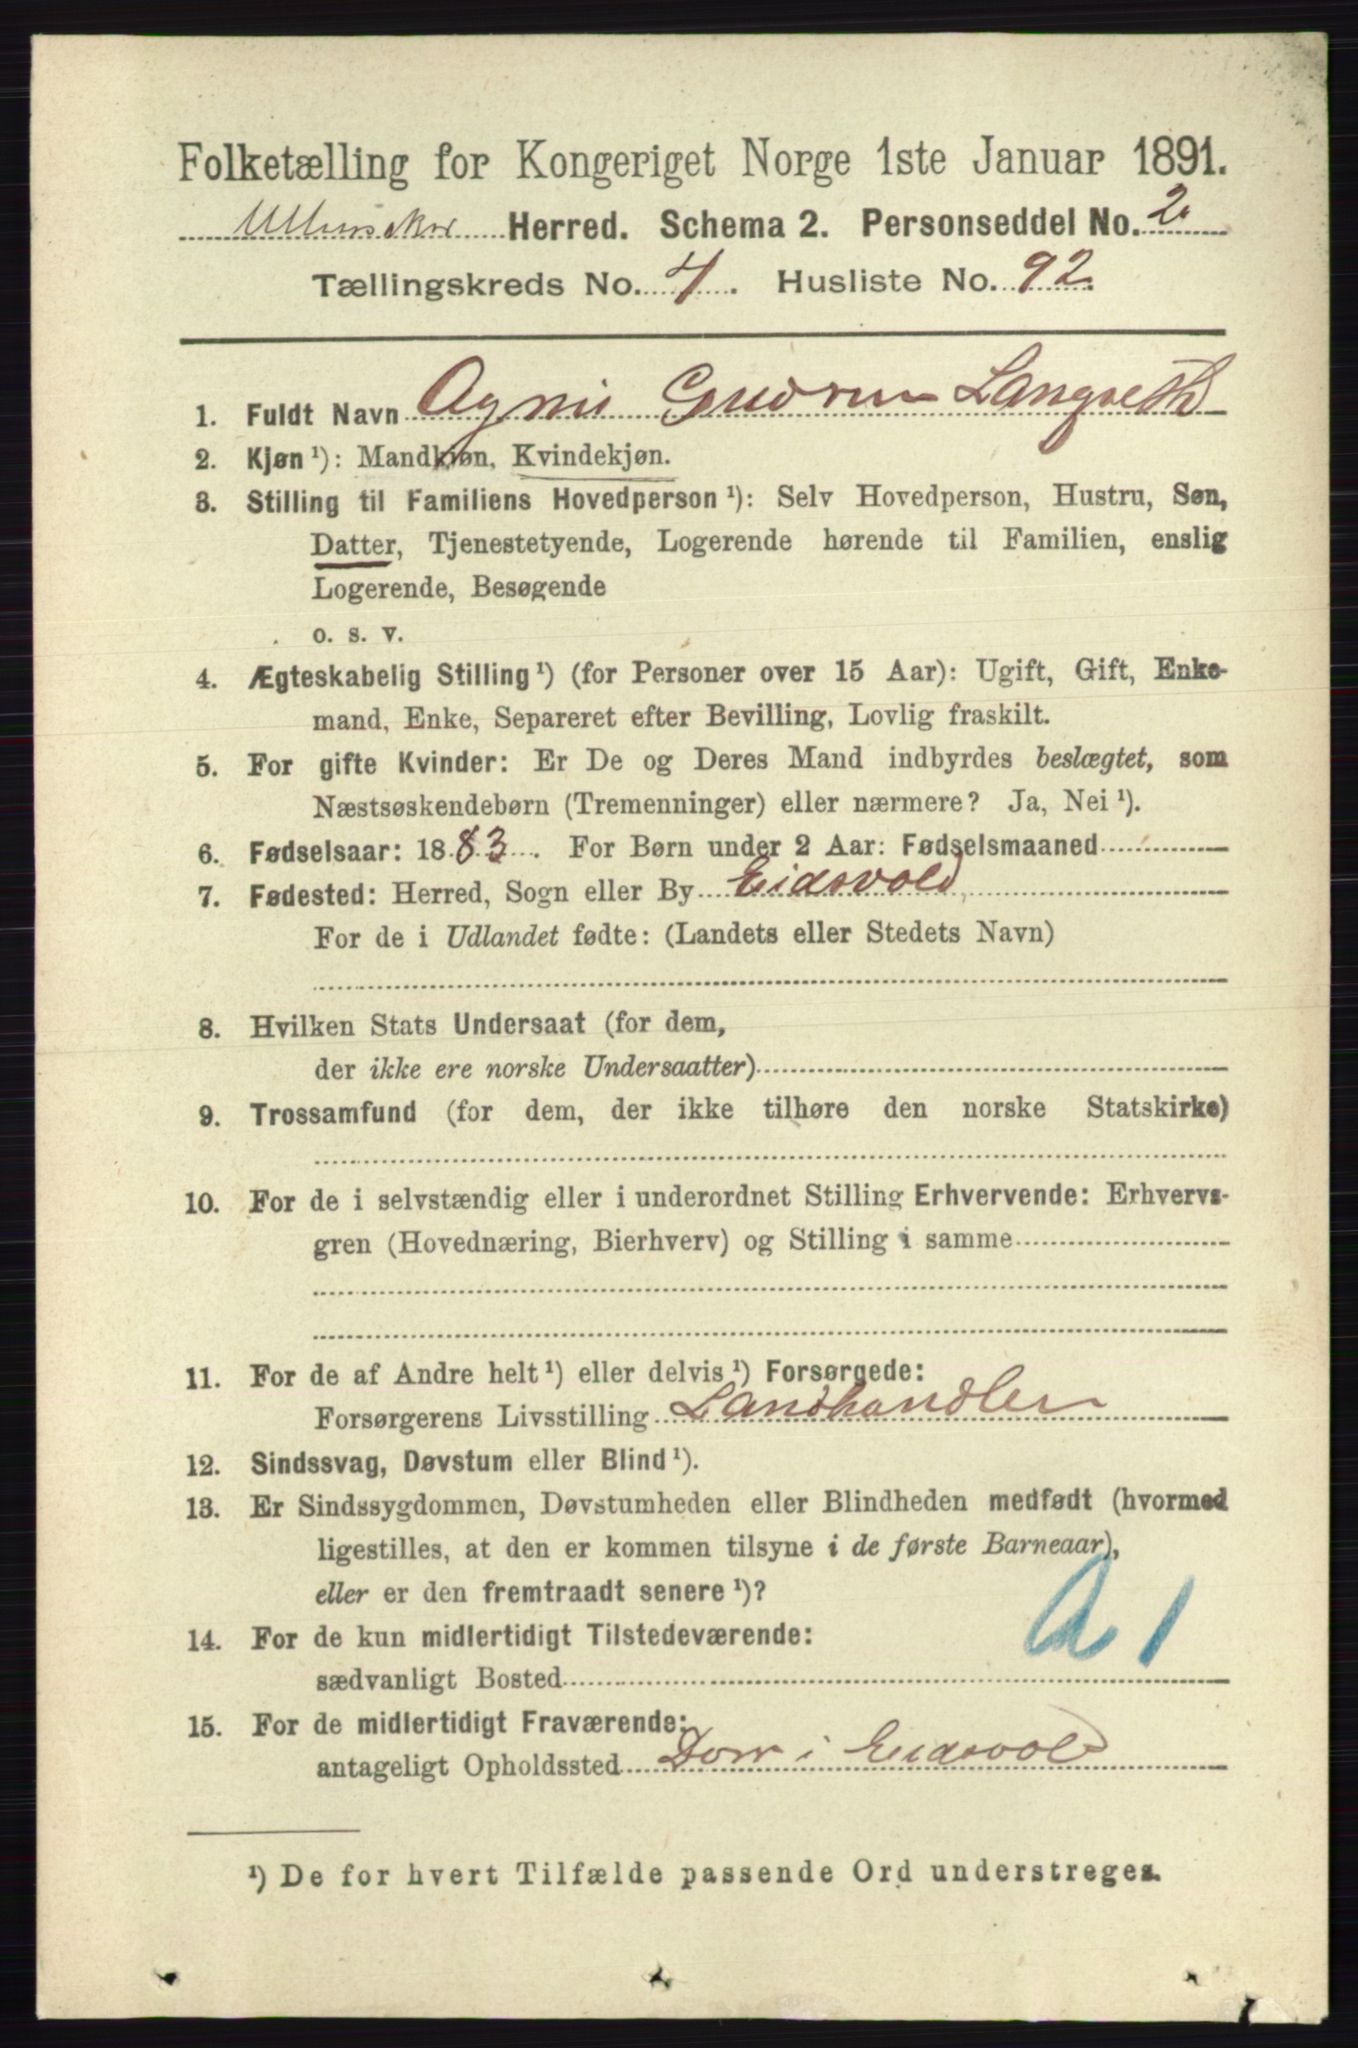 Folketælling for Kongeriget Norge 1ste Januar 1891.
Ullensaker Herred. Schema 2. Personseddel No. 2.
Tællingskreds No. 4. Husliste No. 92.
1. Fuldt Navn Agnes Gudrun Langseth
2. Kjøn ¹): Mandkjøn, Kvindekjøn.
3. Stilling til Familiens Hovedperson ¹): Selv Hovedperson, Hustru, Søn,
Datter, Tjenestetyende, Logerende hørende til Familien, enslig
Logerende, Besøgende
o. s. v.
4. Ægteskabelig Stilling ¹) (for Personer over 15 Aar): Ugift, Gift, Enke-
mand, Enke, Separeret efter Bevilling, Lovlig fraskilt.
5. For gifte Kvinder: Er De og Deres Mand indbyrdes beslægtet, som
Næstsøskendebørn (Tremenninger) eller nærmere? Ja, Nei ¹).
6. Fødselsaar: 1883. For Børn under 2 Aar: Fødselsmaaned
7. Fødested: Herred, Sogn eller By Eidsvold
For de i Udlandet fødte: (Landets eller Stedets Navn)
8. Hvilken Stats Undersaat (for dem,
der ikke ere norske Undersaatter)
9. Trossamfund (for dem, der ikke tilhøre den norske Statskirke)
10. For de i selvstændig eller i underordnet Stilling Erhvervende: Erhvervs-
gren (Hovednæring, Bierhverv) og Stilling i samme
11. For de af Andre helt ¹) eller delvis ¹) Forsørgede:
Forsørgerens Livsstilling Landhandler
12. Sindssvag, Døvstum eller Blind ¹).
13. Er Sindssygdommen, Døvstumheden eller Blindheden medfødt (hvormed
ligestilles, at den er kommen tilsyne i de første Barneaar),
eller er den fremtraadt senere ¹)?
A 1
14. For de kun midlertidigt Tilstedeværende:
sædvanligt Bosted
15. For de midlertidigt Fraværende:
antageligt Opholdssted Dorr i Eidsvold
¹) De for hvert Tilfælde passende Ord understreges.